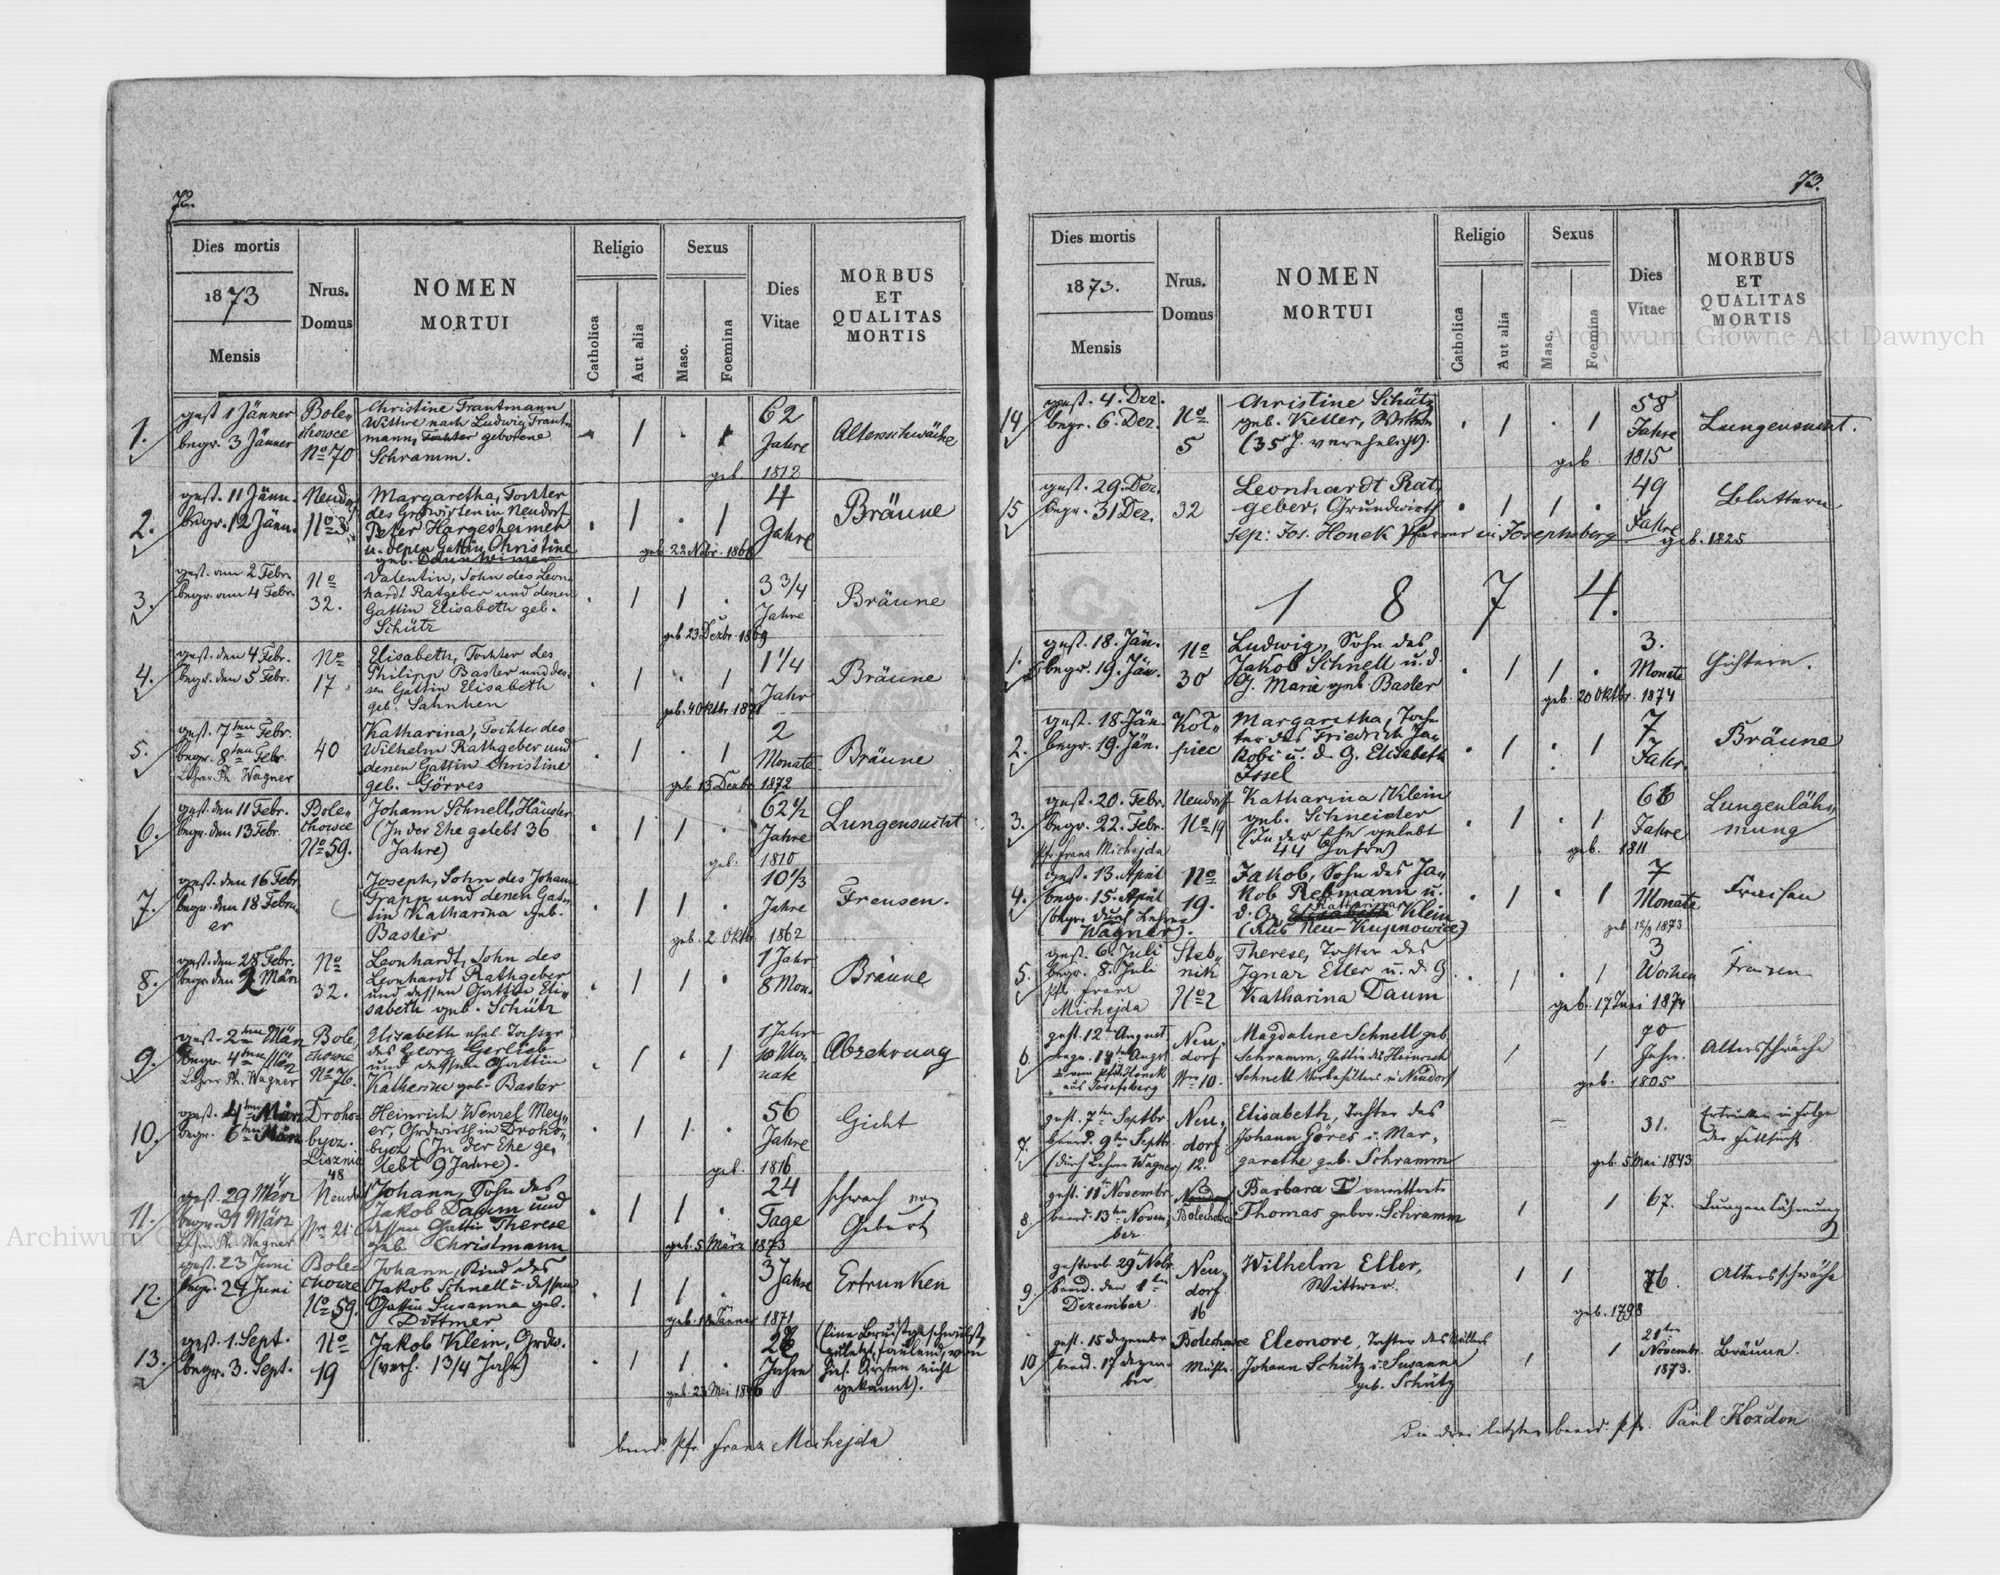 72.
Dies mortis
1873
Mensis
Nrus.
Domus
NOMEN
MORTUI
Religio
Catholica
Aut alia
Sexus
Masc.
Foemina
Dies
Vitae
MORBUS
ET
QUALITAS
MORTIS
1.
gest 1 Jänner
begr. 3 Jänner
Bole„
chowce
No 70
Christine Trautmann
Wittwe nach Ludwig Traut„
mann, Tochter geborene
Schramm.
62
Jahre
geb 1812
Altersschwäche
2.
gest. 11 Jänn.
begr. 12 Jänn.
Neudorf
No 3
Margaretha, Tochter
des Grdwirten in Neudorf
Peter Hargesheimer
u. depen Gattin Christine
geb.
4
Jahre
geb 22 Nobr. 1868
Bräune
3.
gest. am 2 Febr.
begr. am 4 Febr.
No
32.
Valentin, Sohn des Leon„
hardt Ratgeber und denen
Gattin Elisabeth geb.
Schütz
3 3/4
Jahre
geb 23 Dezbr. 1869
Bräune
4.
gest. den 4 Febr.
begr. den 5 Febr.
No
17.
Elisabeth, Tochter des
Philipp Baster und des„
sen Gattin Elisabeth
geb.
1 1/4
Jahr
geb. 4 Oktbr. 1871
Bräune
5.
gest. 7ten Febr.
begr. 8ten Febr.
Lehrer Ph. Wagner
40
Katharina, Tochter des
Wilhelm Rathgeber und
denen Gattin Christine
geb. Görres
2
Monate
geb 13 Dezbr 1872
Bräune
6.
gest. den 11 Febr.
begr. den 13 Febr.
Bole„
chowce
No 59.
Johann Schnell, Häusler
(In der Ehe gelebt 36
Jahre)
62 1/2
Jahre
geb. 1810
Lungensucht
7.
gest. den 16 Febr.
begr. den 18 Febru„
er
Joseph, Sohn des Johann
Trapp und denen Gat„
tin Katharina geb.
Baster
10 1/3
Jahre
geb. 2 Oktb. 1862
Freusen.
8.
gest. den 28 Febr.
begr den 2 März
No
32.
Leonhardt, Sohn des
Leonhardt Rathgeber
und dessen Gattin Eli„
sabeth geb. Schütz
1 Jahr
8 Mon.
Bräune
9.
gest. 2ten März
begr. 4ten März
Lehrer Ph. Wagner
Bole„
chowce
No 76.
Elisabeth ehel. Tochter
des Georg Gerlieb
und dessen Gattin
Katherina geb. Baster
1 Jahr
10 Mo„
nate
Abzehrung
10.
gest. 4ten März
begr. 6ten März
Droho„
bycz.
Lisznia
48
Heinrich Wenzel Mey„
er, Grdwirth in Droho„
bycz (In der Ehe ge„
lebt 9 Jahre).
56
Jahre
geb. 1816
Gicht
11.
gest. 29 März
begr. 31 März
Lehrer Ph. Wagner
Neudorf
Nr. 21
Johann, Sohn des
Jakob Daum und
dessen Gattin Therese
geb Christmann
24
Tage
geb. 5 März 1873
schwach von
Geburt
12.
gest. 23 Juni
begr. 24 Juni
Bole„
chowce
No 59.
Johann, Kind des
Jakob Schnell u. dessen
Gattin Susanna geb.
Dottmer
3 Jahre
geb. Jänner 1871
Ertrunken
13.
gest. 1. Sept.
begr. 3. Sept.
No
19
Jakob Klein, Grdw.
(verh. 1 3/4 Jahr)
Jahre
geb. 23 Mai
(Eine Brustgeschwulst,
zuletzt faulend, von
hies. Ärzten nicht
gekannt).
beerd. Pfr. Franz Michejda
73.
Dies mortis
1873.
Mensis
Nrus.
Domus
NOMEN
MORTUI
Religio
Catholica
Aut alia
Sexus
Masc.
Foemina
Dies
Vitae
MORBUS
ET
QUALITAS
MORTIS
14
gest. 4. Dez.
begr. 6. Dez.
No
5
Christine Schütz
geb. Keller,
(35 J. verehelicht).
58
Jahre
geb 1815
Lungensucht.
15
gest. 29. Dez.
begr. 31 Dez.
32
Leonhardt Rat„
geber, Grundwirth
49
Jahre
geb. 1825
Blattern
Sep: Jos. Honek Pfarrer in Josephsberg
1 8 7 4.
1.
gest. 18. Jän.
begr. 19. Jän.
No
30
Ludwig, Sohn des
Jakob Schnell u. d.
G. Maria geb Basler
3.
Monate
geb. 20 Oktbr. 1874
Gichtern.
2.
gest. 18. Jän.
begr. 19. Jän.
Kot„
Margaretha, Toch„
ter des Friedrich Ja„
kobi u. d. G. Elisabeth
Issel
7
Jahr.
Bräune
3.
gest. 20. Febr.
begr. 22. Febr.
Pfr. Franz Michejda
Neudorf
No 19
Katharina Klein
geb. Schneider
(In der Ehe gelebt
44 Jahre)
Jahre
geb. 1811
Lungenläh„
mung
4.
gest. 13. April
begr. 15. April
(begr. durch Lehrer
Wagner).
No
19.
Jakob, Sohn des Ja„
kob Rebmann u.
d. G. Katharina Klein
(Aus Neu-Kupnowice)
7
Monate
geb 12/9 1873
Fraisen
5.
gest. 6. Juli
begr. 8. Juli
Pfr. Franz
Michejda
Steb„
nik
No 2
Therese, Tochter des
Ignaz Eller u. d. G
Katharina Daum
3
Wochen
geb. 17 Juni 1874
Fraisen
6.
gest. 12ten August
begr. 14ten Augst
v. vom Pf. Honek
aus Josefsberg
Neu„
dorf
Nro 10.
Magdalene Schnell geb
Schramm, Gattin des Heinrich
Schnell in Neudorf
70
Jahre.
geb. 1805
Altersschwäche
7.
gest. 7ten Septbr
beerd. 9ten Septbr.
(durch Lehrer Wagner)
Neu„
dorf
12.
Elisabeth, Tochter des
Johann Göres u. Mar„
garethe geb. Schramm
31.
geb 5 Mai 1843
Ertrunken in Folge
der Fallsucht.
8.
gest. 11ten Novembr
beerd. 13ten Novem„
ber
Bolechowce
Barbara verwittwete
Thomas gebor. Schramm
67.
Lungenlähmung
9.
gestorb. 29ten Nobr.
beerd. den 1ten
Dezember
Neu„
dorf
16
Wilhelm Eller,
Wittwer.
76.
geb. 1798
Altersschwäche
10
gest. 15 Dezember
beerd. 17 Dezem„
ber
Bolechowce
Mühle.
Eleonore, Tochter des Müllers
Johann Schütz u. Susanna
geb. Schütz
21ten
Novembr.
1873.
Bräune.
Die drei letzten beerd. Pfr. Paul Kozdon
Archiwum Główne Akt Dawnych
Archiwum